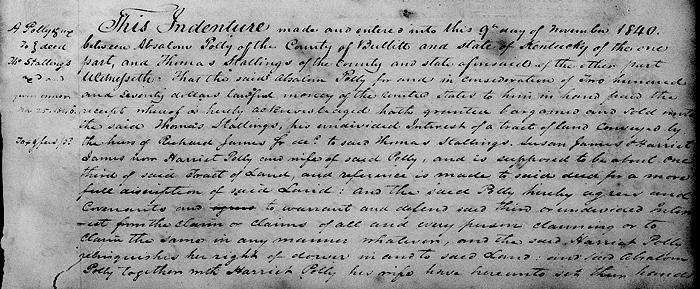 A Polly & ux
To } deed
Tho Stallings
This Indenture made and entered into this 9th day of November 1840.
between Absalom Polly of the County of Bullitt and state of Kentucky of the one
part, and Thomas Stallings of the County and state aforesaid of the other part
Witnesseth: That the said Absalom Polly for and in consideration of Two hundred
and seventy dollars lawful money of the united states to him in hand paid the
receipt whereof is hereby acknowledged hath granted bargained and sold unto
the said Thomas Stallings, his undivided Interest of a tract of land conveyed by
the heirs of Richard James Jr decd to said Thomas Stallings. Susan James & Harriet
James now Harriet Polly and wife of said Polly, and is supposed to be about one
third of said Tract of Land, and reference is made to said deed for a more
full discription of said Land: and the said Polly hereby agrees and
Covenants and agrees to warrant and defend said third or undivided Inter
est from the claim or claims of all and every person claiming or to
claim the same in any manner whatever, and the said Harriet Polly
relinquishes her right of dower in and to said Land: and said Absalom
Polly together with Harriet Polly his wife have hereunto set their hands